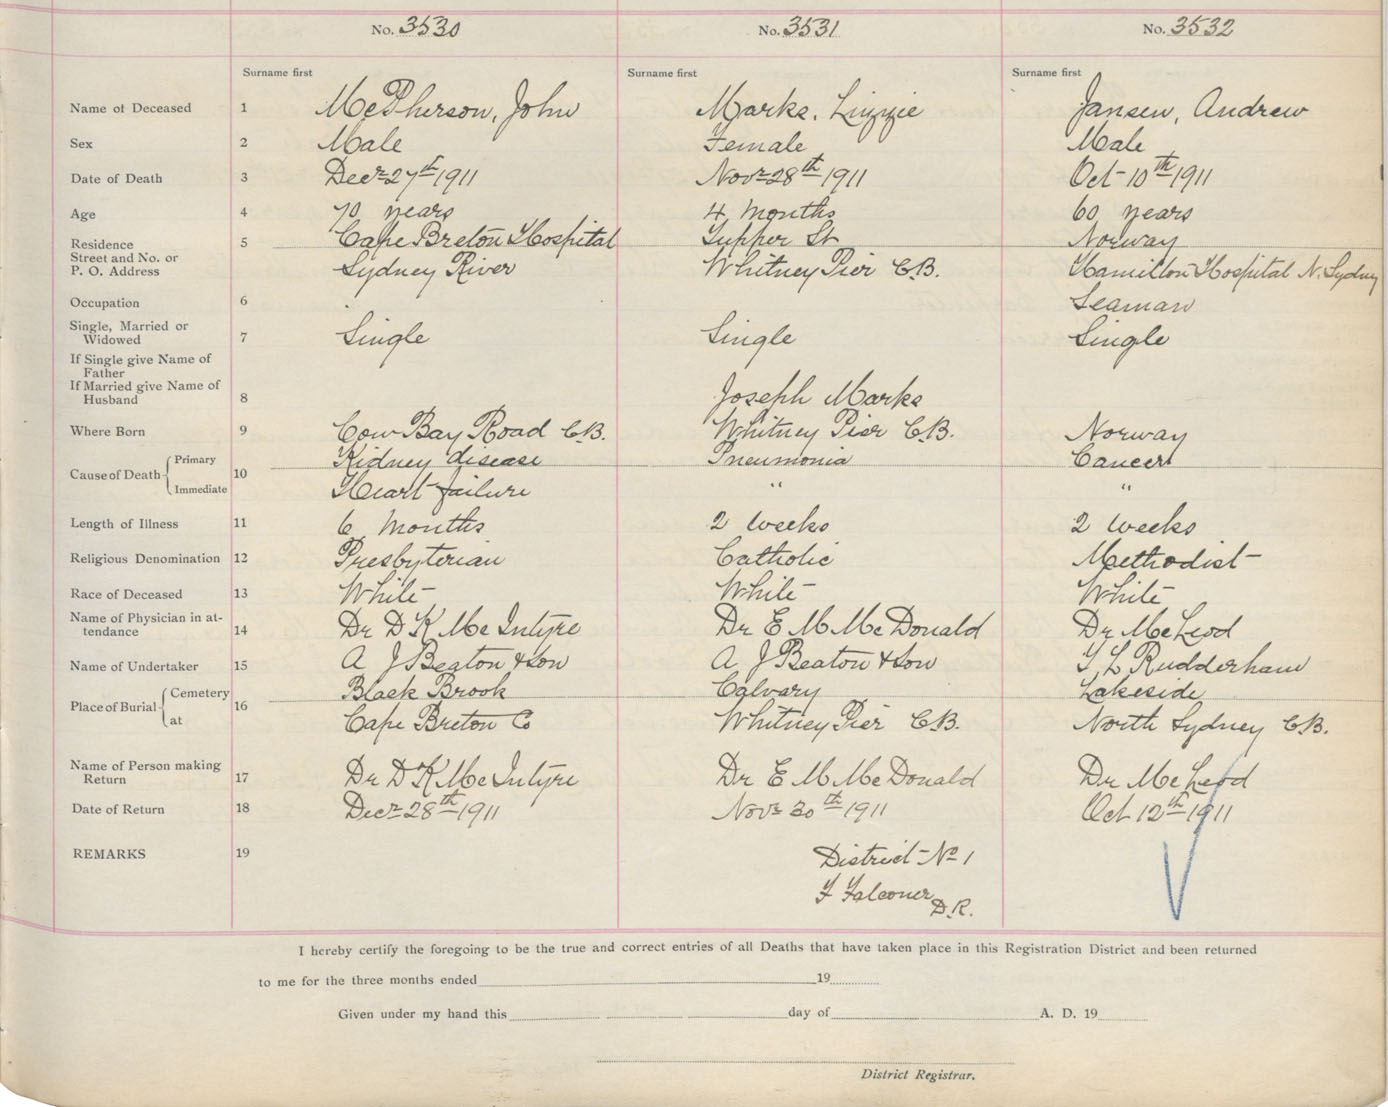 No. 3530 No. 3531 No. 3532
Surname first Surname first Surname first
Name of Deceased 1 McPherson, John Marks, Lizzie Jansen, Andrew
Sex 2 Male Female Male
Date of Death 3 Decr 27th 1911 Novr 28th 1911 Oct 10th 1911
Age 4 70 years 4 months 60 years
Residence 5 Cape Breton Hospital Tupper St Norway
Street and No. or
P. O. Address Sydney River Whitney Pier C.B. Hamilton Hospital N. Sydney
Occupation 6 Seaman
Single, Married or
Widowed 7 Single Single Single
If Single give Name of
Father
If Married give Name of
Husband 8 Joseph Marks
Where Born 9 Cow Bay Road C.B. Whitney Pier C.B. Norway
Primary Kidney disease Pneumonia Cancer
Cause of Death 10
Immediate Heart failure " "
Length of Illness 11 6 months 2 weeks 2 weeks
Religious Denomination 12 Presbyterian Catholic Methodist
Race of Deceased 13 White White White
Name of Physician in at-
tendance 14 Dr D K McIntyre Dr E M McDonald Dr McLeod
Name of Undertaker 15 A J Beaton & Son A J Beaton & Son F L Rudderham
Cemetery Black Brook Calvary Lakeside
Place of Burial 16
at Cape Breton Co Whitney Pier C.B. North Sydney C.B.
Name of Person making
Return 17 Dr D K McIntyre Dr E M McDonald Dr McLeod
Date of Return 18 Decr 28th 1911 Novr 30th 1911 Oct 12th 1911
REMARKS 19 District No 1
F Falconer
D.R.
I hereby certify the foregoing to be the true and correct entries of all Deaths that have taken place in this Registration District and been returned
to me for the three months ended 19
Given under my hand this day of A. D. 19
District Registrar.